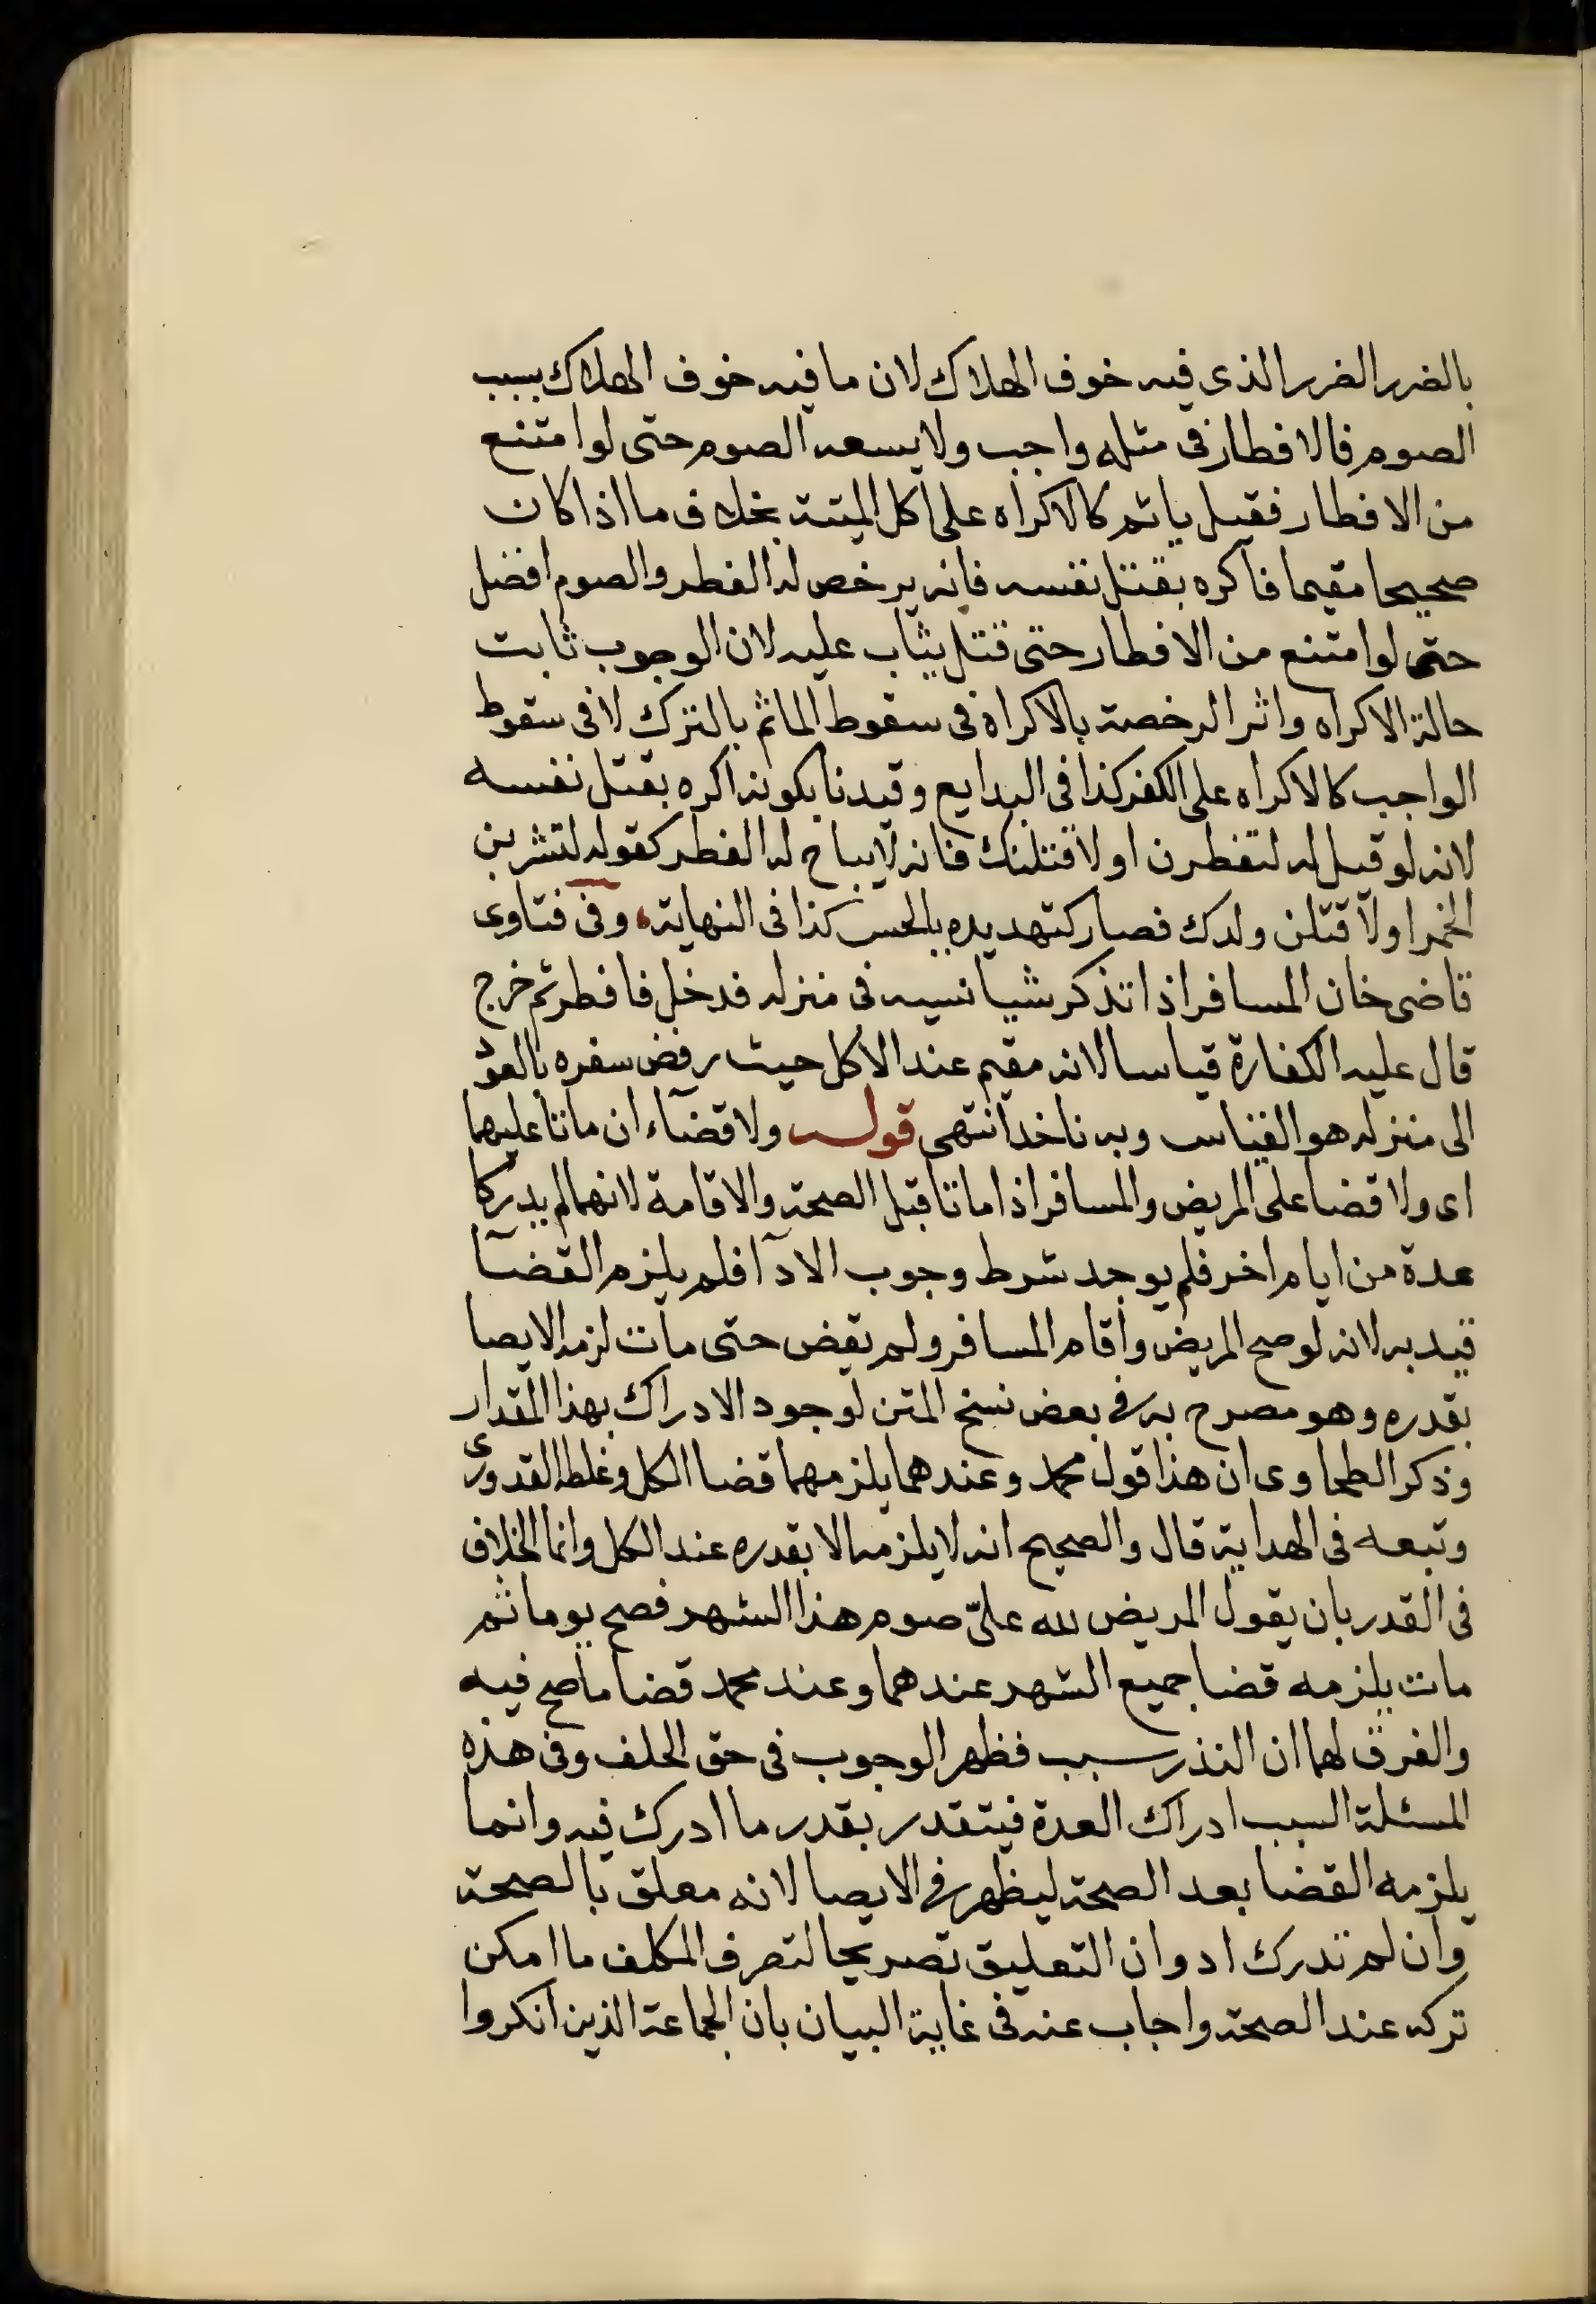 بالضرر الضرر الذى فيه خوف الهلاك لان ما فيه خوف الهلاك بسبب
الصوم فالافطار فى مثله واجب ولا يسعه الصوم حتى لو امتنع
من الافطار فقيل ياثم كالاكراه على اكل الميتة بخلاف ما اذا كان
صحيحا مقيما فاكره بقتل نفسه فانه يرخص له الفطر والصوم افضل
حتى لو امتنع من الافطار حتى قتل يثاب عليه لان الوجوب ثابت
حالة الاكراه واثر الرخصة بالاكراه فى سقوط الماثم بالترك لا فى سقوط
الواجب كالاكراه على الكفر كذا فى البدايع وقيدنا بكونه اكره بقتل نفسه
لانه لو قيل له لتفطرن او لاقتلنك فانه لا يباح له الفطر كقوله لتشربن
الخمر او لاقتلن ولدك فصار كتهديده بالحبس كذا فى النهاية، وفى فتاوى
قاضى خان المسافر اذا تذكر شيا نسيه فى منزله فدخل فافطر ثم خرج
قال عليه الكفارة قياسا لانه مقيم عند الاكل حيث رفض سفره بالعود
الى منزله هو القياس وبه ناخذ انتهى قوله ولا قضاء ان ماتا عليهما
اى ولا قضا على المريض والمسافر اذا ماتا قبل الصحة والاقامة لانهما لم يدركا
عدة من ايام اخر فلم يوجد شرط وجوب الادآ فلم يلزم القضآ
قيد به لانه لو صح المريض واقام المسافر ولم يقض حتى مات لزمه الايصا
بقدره وهو مصرح به فى بعض نسخ المتن لوجود الادراك بهذا المقدار
وذكر الطحاوى ان هذا قول محمد وعندهما يلزمهما قضا الكل وغلطه القدورى
وتبعه فى الهداية قال والصحيح انه لا يلزمه الا بقدره عند الكل وانما الخلاف
فى القدر بان يقول المريض لله علىّ صوم هذا الشهر فصح يوما ثم
مات يلزمه قضا جميع الشهر عندهما وعند محمد قضا ما صح فيه
والفرق لهما ان النذر سبب فظهر الوجوب فى حق الخلف وفى هذه
المسئلة السبب ادراك العدة فيتقدر بقدر ما ادرك فيه وانما
يلزمه القضا بعد الصحة ليظهر فى الايصا لانه معلق بالصحة
وان لم تدرك ادوان التعليق تصريحا لتصرف المكلف ما امكن
تركه عند الصحة واجاب عنه فى غاية البيان بان الجماعة الذين انكروا